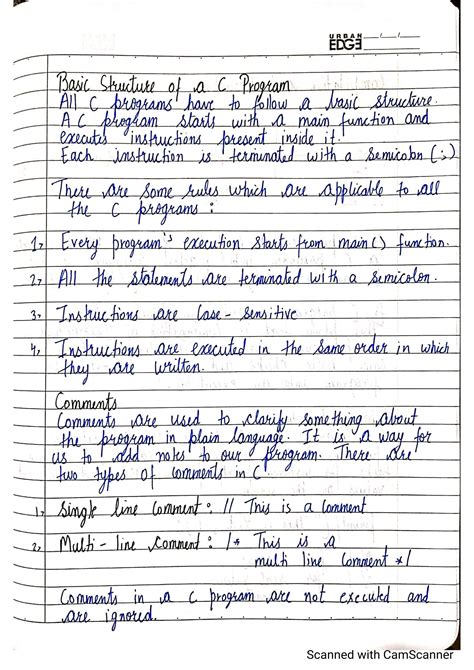 URBAN
EDGE
Basic Structure of a C Program
All C programs have to follow a basic structure.
A C program starts with a main function and
executes instructions present inside it.
Each instruction is terminated with a semicolon (;)
There are some rules which are applicable to all
the C programs :
1> Every program's execution starts from main() function.
2> All the statements are terminated with a semicolon.
3> Instructions are Case-sensitive
4> Instructions are executed in the same order in which
they are written.
Comments
Comments are used to clarify something about
the program in plain language. It is a way for
us to add notes to our program. There are
two types of comments in C
1> Single line Comment : // This is a Comment
2> Multi-line Comment : /* This is a
multi line Comment */
Comments in a C program are not executed and
are ignored.
Scanned with CamScanner